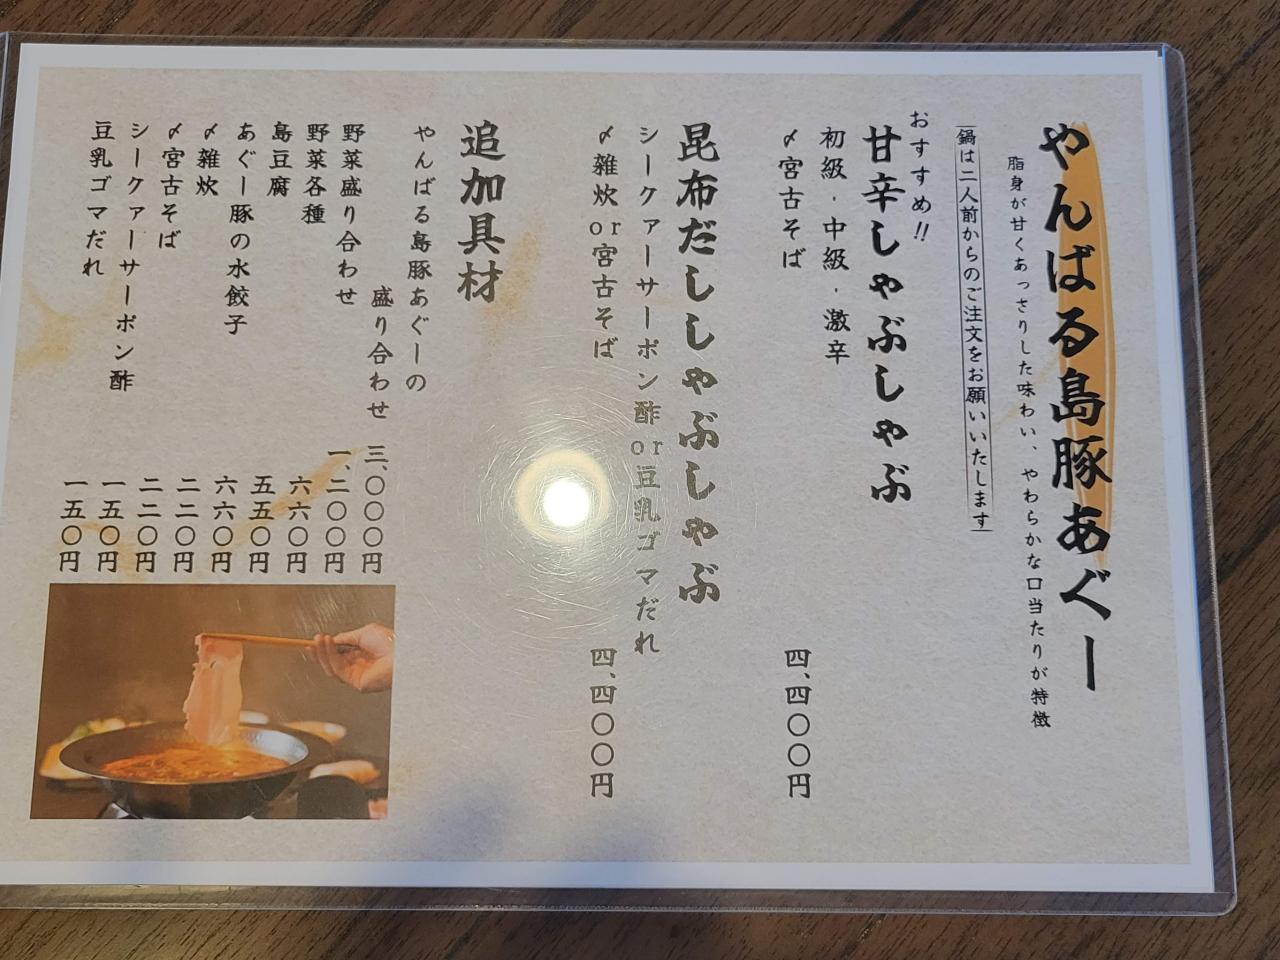 やんばる島豚あぐー
脂身が甘くあっさりした味わい、やわらかな口当たりが特徴
鍋は二人前からのご注文をお願いいたします
おすすめ!!
甘辛しゃぶしゃぶ
初級・中級・激辛
〆宮古そば
四、四〇〇円
昆布だししゃぶしゃぶ
シークァーサーポン酢or豆乳ゴマだれ
〆雑炊or宮古そば
四、四〇〇円
追加具材
やんばる島豚あぐーの
盛り合わせ 三、〇〇〇円
野菜盛り合わせ 一、二〇〇円
野菜各種 六六〇円
島豆腐 五五〇円
あぐー豚の水餃子 六六〇円
〆雑炊 二二〇円
〆宮古そば 二二〇円
シークァーサーポン酢 一五〇円
豆乳ゴマだれ 一五〇円